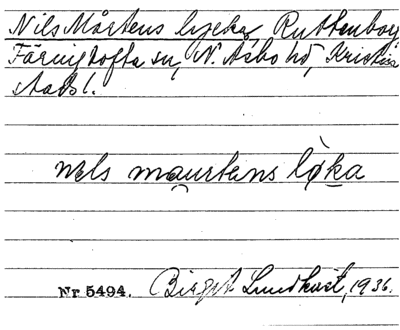 Nils Mårtens lycka, Ruttenborg
Färingtofta sn, N. Åsbo hd, Kristian
stads l.
nels maurtens løka
Nr 5494. Birgit Lundkvist, 1936.